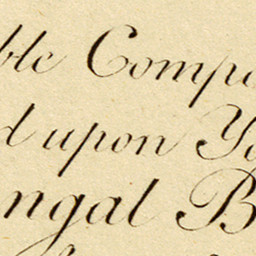 ble Compa
d upon Yo
ngal B